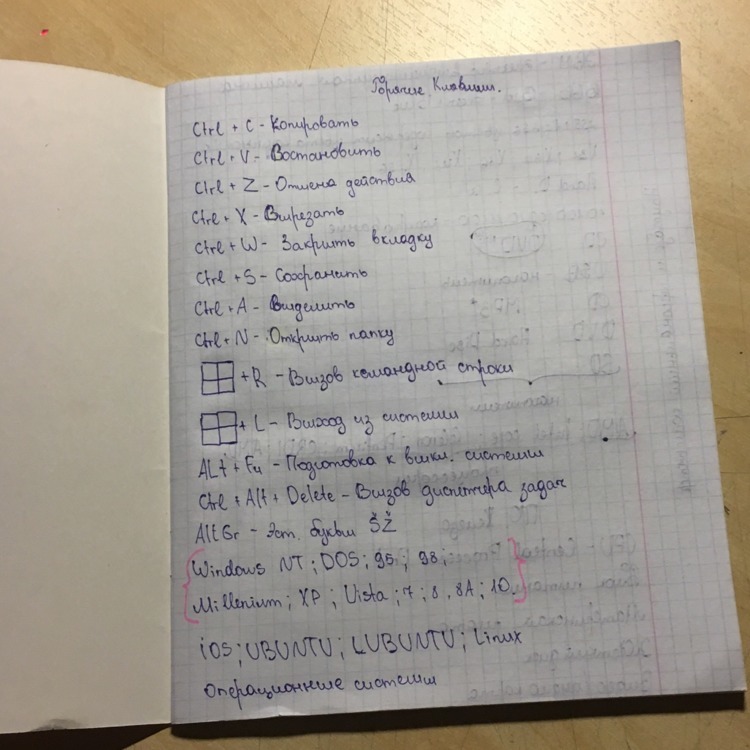 Горячие Клавиши.
Ctrl + C - Копировать
Ctrl + V - Востановить
Ctrl + Z - Отмена действия
Ctrl + X - Вырезать
Ctrl + W - Закрыть вкладку
Ctrl + S - Сохранить
Ctrl + A - Выделить
Ctrl + N - Открыть папку
+ R - Вызов командной строки
+ L - Выход из системы
ALt + F4 - Подготовка к выкл. системы
Ctrl + Alt + Delete - Вызов диспетчера задач
AltGr - Эст. буквы ŠŽ
Windows NT ; DOS ; 95 ; 98 ;
Millenium ; XP ; Vista ; 7 ; 8 , 8A ; 10.
iOS ; UBUNTU ; LUBUNTU ; Linux
Операционные системы